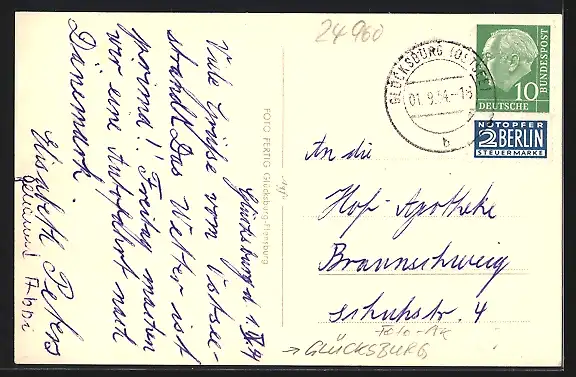 24960
Glücksburg d. 1.IX.54
Viele Grüße vom Ostsee-
strand! Das Wetter ist
prima! Freitag machen
wir eine Autofahrt nach
Dänemark.
Elisabeth Peters
FOTO FERTIG Glücksburg-Flensburg
GLÜCKSBURG (OSTSEE)
01.9.54.-18
b
DEUTSCHE BUNDESPOST
10
NOTOPFER
2 BERLIN
STEUERMARKE
An die
Hof-Apotheke
Braunschweig
Schuhstr. 4
Foto-AK
→ GLÜCKSBURG